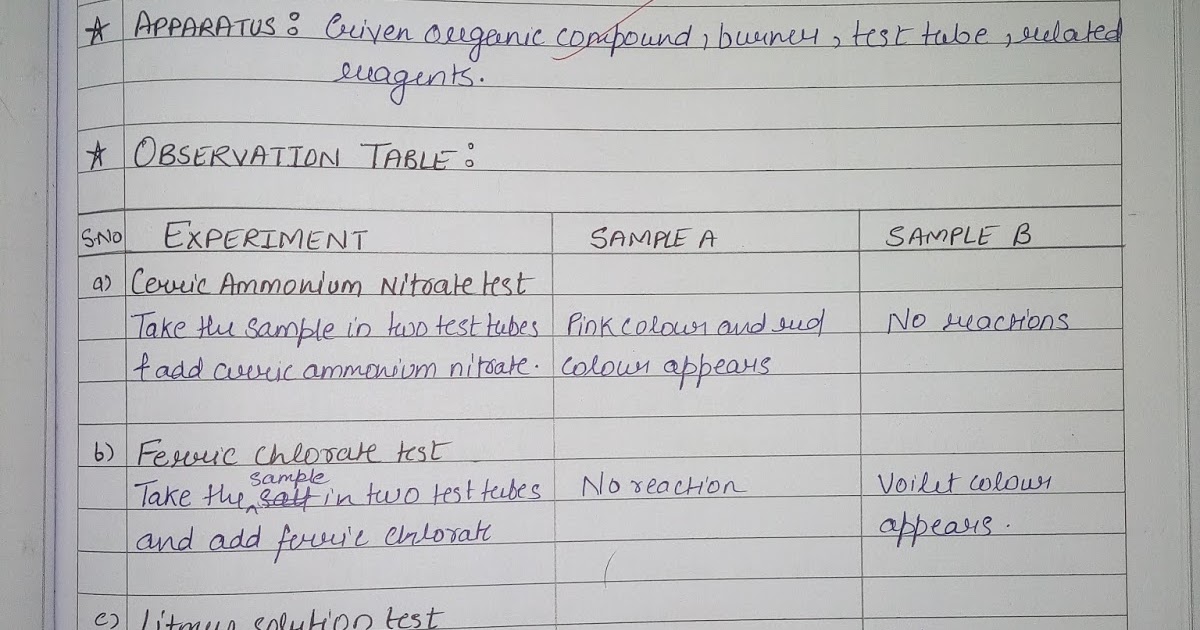 ☆ APPARATUS: Given organic compound, burner, test tube, related
reagents.
☆ OBSERVATION TABLE:
S.NO EXPERIMENT SAMPLE A SAMPLE B
a) Cerric Ammonium Nitrate test
Take the sample in two test tubes Pink colour and red No reactions
& add cerric ammonium nitrate. colour appears
b) Ferric Chlorate test
sample
Take the salt in two test tubes No reaction Voilet colour
and add ferric chlorate appears.
c) Litmus solution test